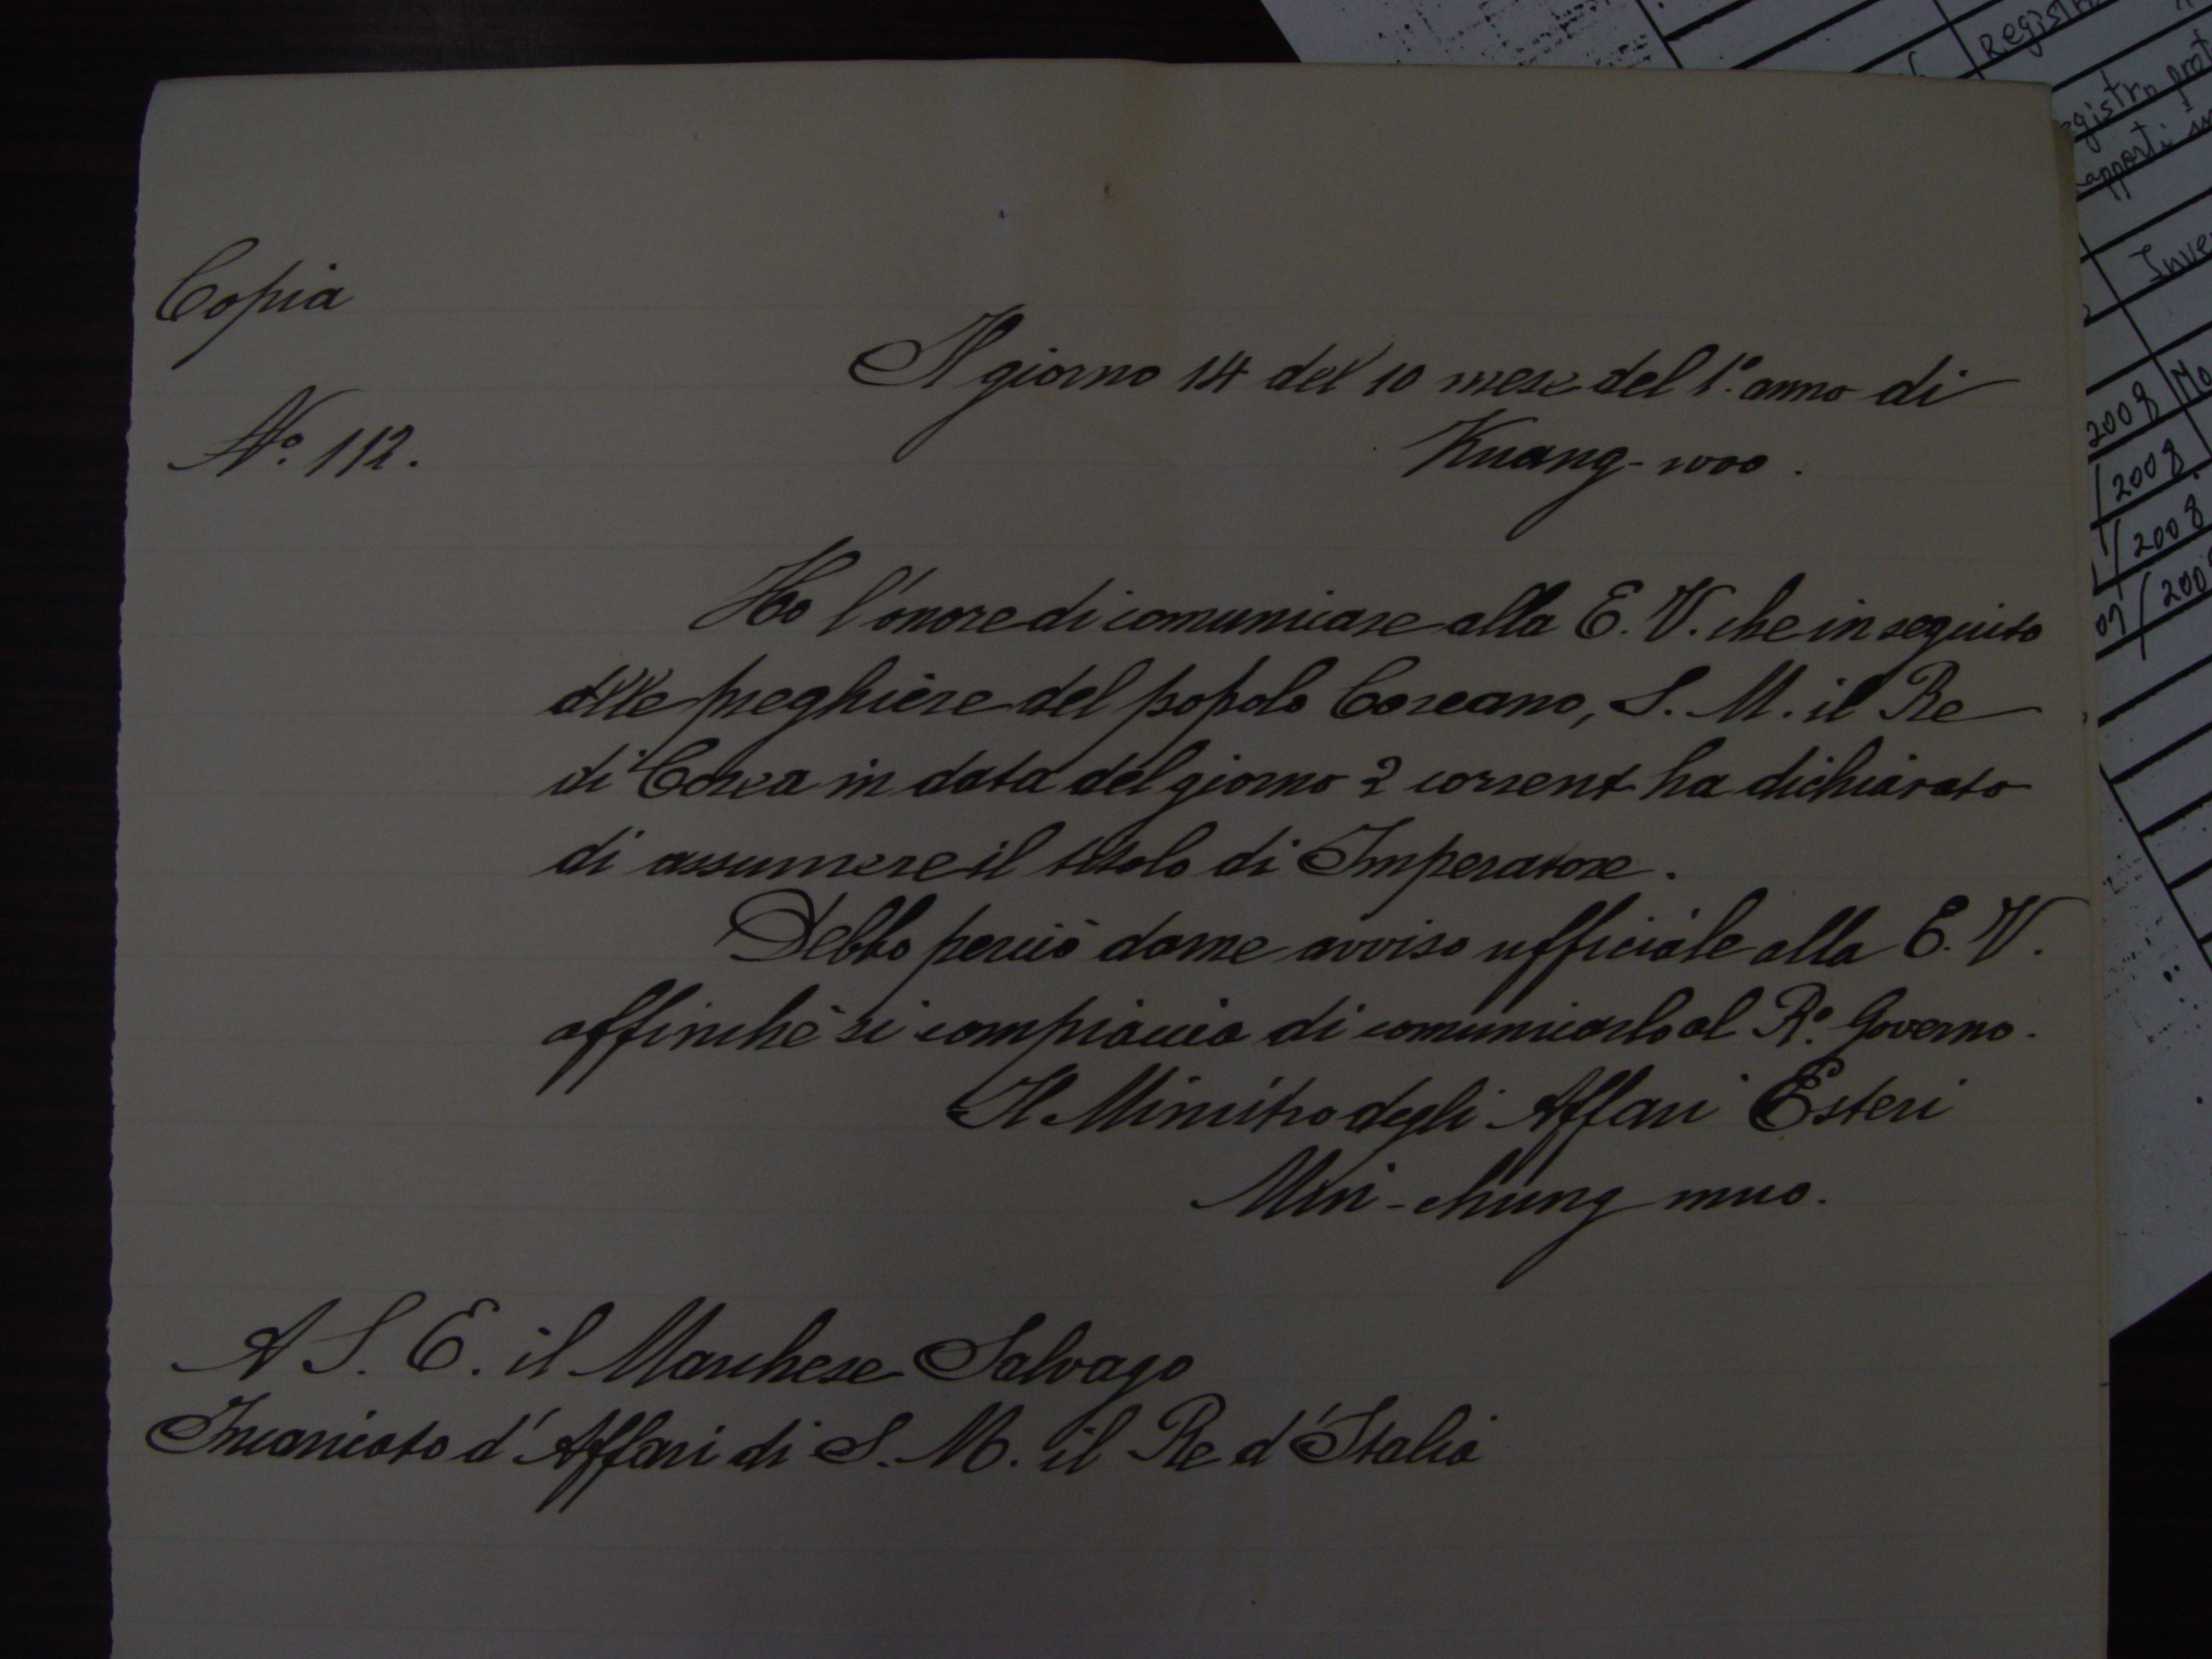 Copia
Il giorno 14 del 10 mese del 1º anno di
Kuang-woo.
Nº 112.
Ho l'onore di comunicare alla E. V. che in seguito
alle preghiere del popolo Coreano, S. M. il Re
di Corea in data del giorno 2 corrent ha dichiarato
di assumere il titolo di Imperatore.
Debbo perciò darne avviso ufficiale alla E. V.
affinchè si compiaccia di comunicarlo al Rº Governo.
Il Ministro degli Affari Esteri
Min-chung muo.
A S. E. il Marchese Salvago
Incaricato d'Affari di S. M. il Re d'Italia
Registr
egistro prot
apporti in
Inve
2008 Mo
/2008
/2008
07/200